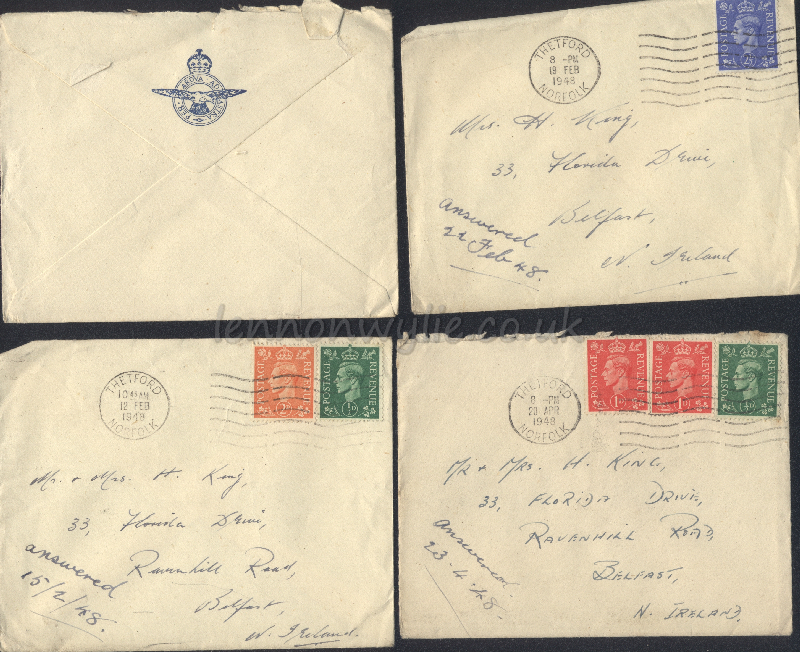 PER ARDUA AD ASTRA
THETFORD
8 - PM
18 FEB
1948
NORFOLK
POSTAGE
REVENUE
Mrs. H. King,
33, Florida Drive,
Belfast,
N. Ireland
answered
22 Feb 48.
lennonwylie.co.uk
THETFORD
12 FEB
1948
NORFOLK
POSTAGE
REVENUE
2D
POSTAGE
REVENUE
½D
Mr. & Mrs. H. King,
33, Florida Drive,
Ravenhill Road,
Belfast,
N. Ireland.
answered
15/2/48.
THETFORD
8 - PM
APR
1948
NORFOLK
POSTAGE
REVENUE
1D
POSTAGE
REVENUE
1D
POSTAGE
REVENUE
½D
Mr & Mrs. H. King,
33, Florida Drive,
Ravenhill Road,
Belfast,
N. Ireland.
answered
23.4.48.